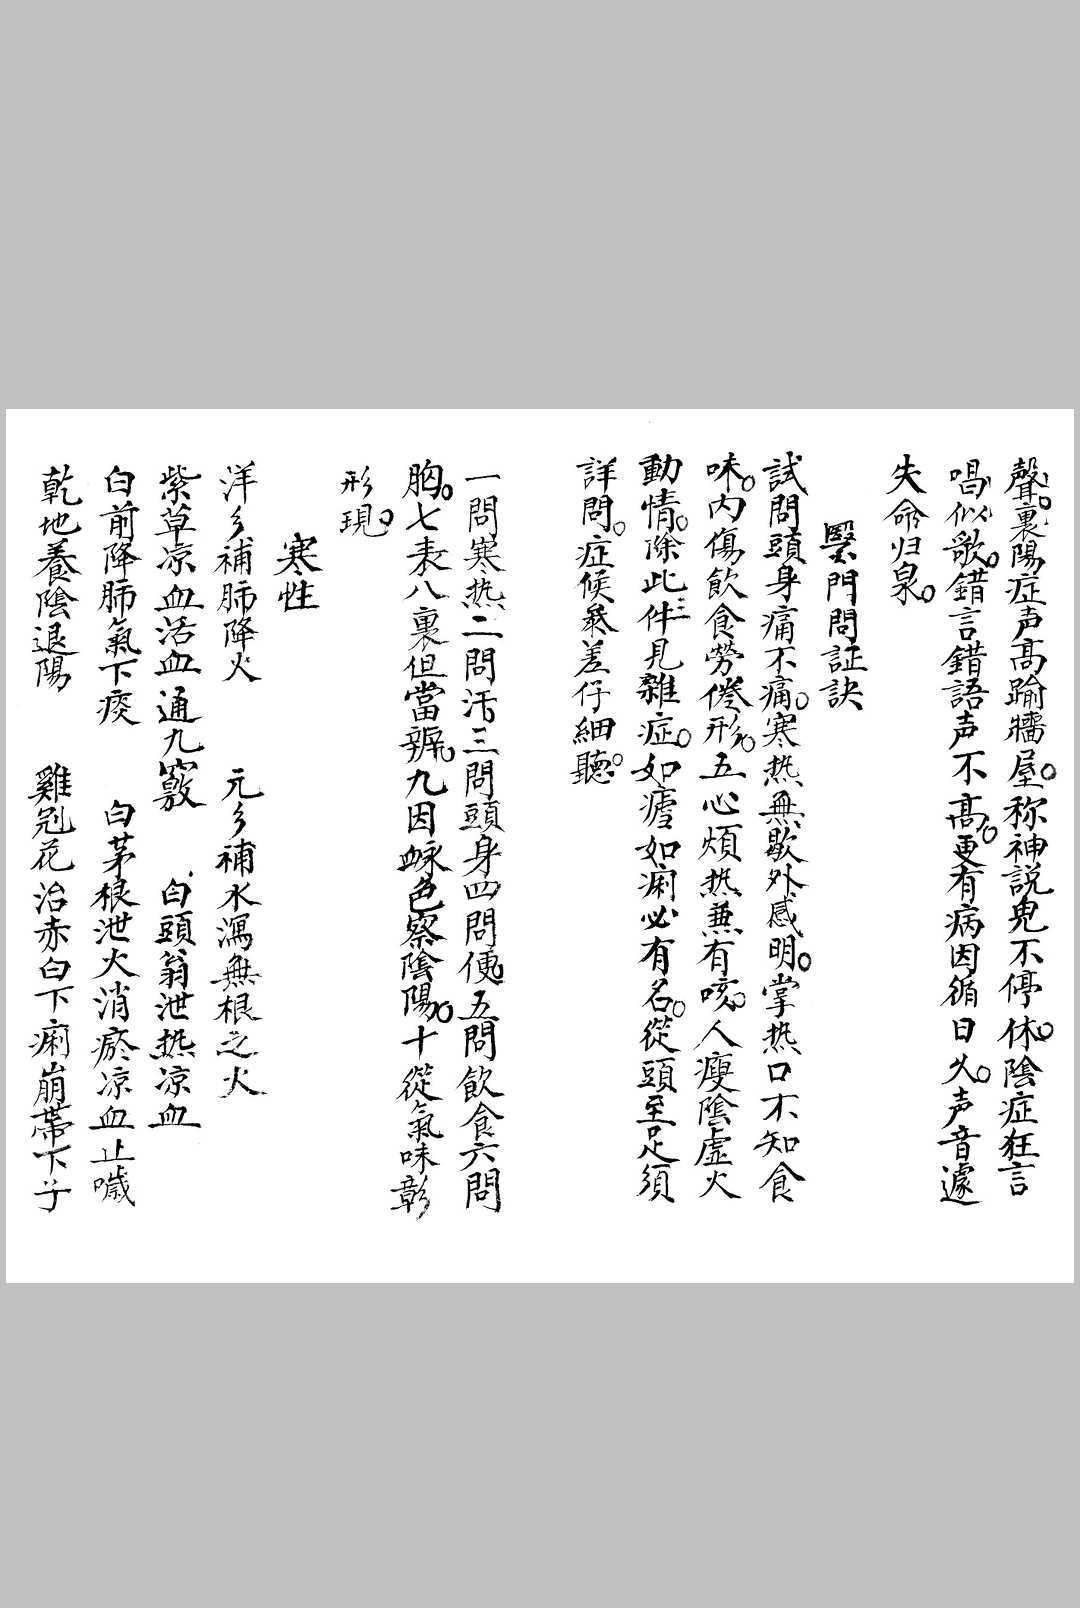 聲。裏陽症声高踰牆屋。称神説鬼不停休。陰症狂言
唱似歌。錯言錯語声不高。更有病因循日久。声音遽
失命归泉。
醫門問証訣
試問頭身痛不痛。寒热無歇外感明。掌热口不知食
味。内傷飲食勞倦形。五心煩热兼有咳。人瘦陰虛火
動情。除此三件見雜症。如瘧如痢必有名。從頭至足須
詳問。症候參差仔細聽。
一問寒热二問汗三問頭身四問便五問飲食六問
胸。七表八裏但當辨。九因脉色察陰陽。十從氣味彰
形現。
寒性
洋参補肺降火 元参補水瀉無根之火
紫草凉血活血通九竅 白頭翁泄热凉血
白前降肺氣下痰 白茅根泄火消瘀凉血止噦
乾地養陰退陽 雞冠花治赤白下痢崩帶下子